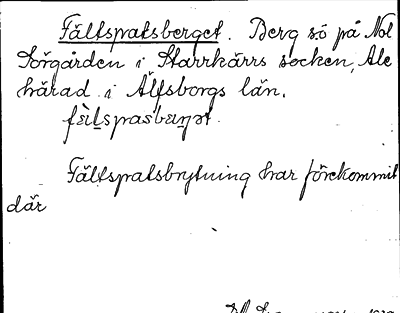 Fältspatsberget. Berg sö på Nol
Sörgården i Starrkärrs socken, Ale
härad i Älfsborgs län.
fälspasbærjət.
Fältspatsbrytning har förekommit
där